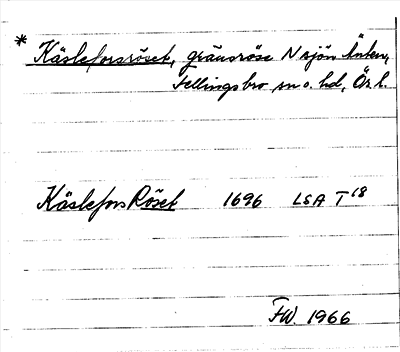 * Käsleforsröset, gränsröse N sjön Änken,
Fellingsbro sn o. hd, Ör. l.
Käslefors Röset 1696 LSA T 18
FW. 1966